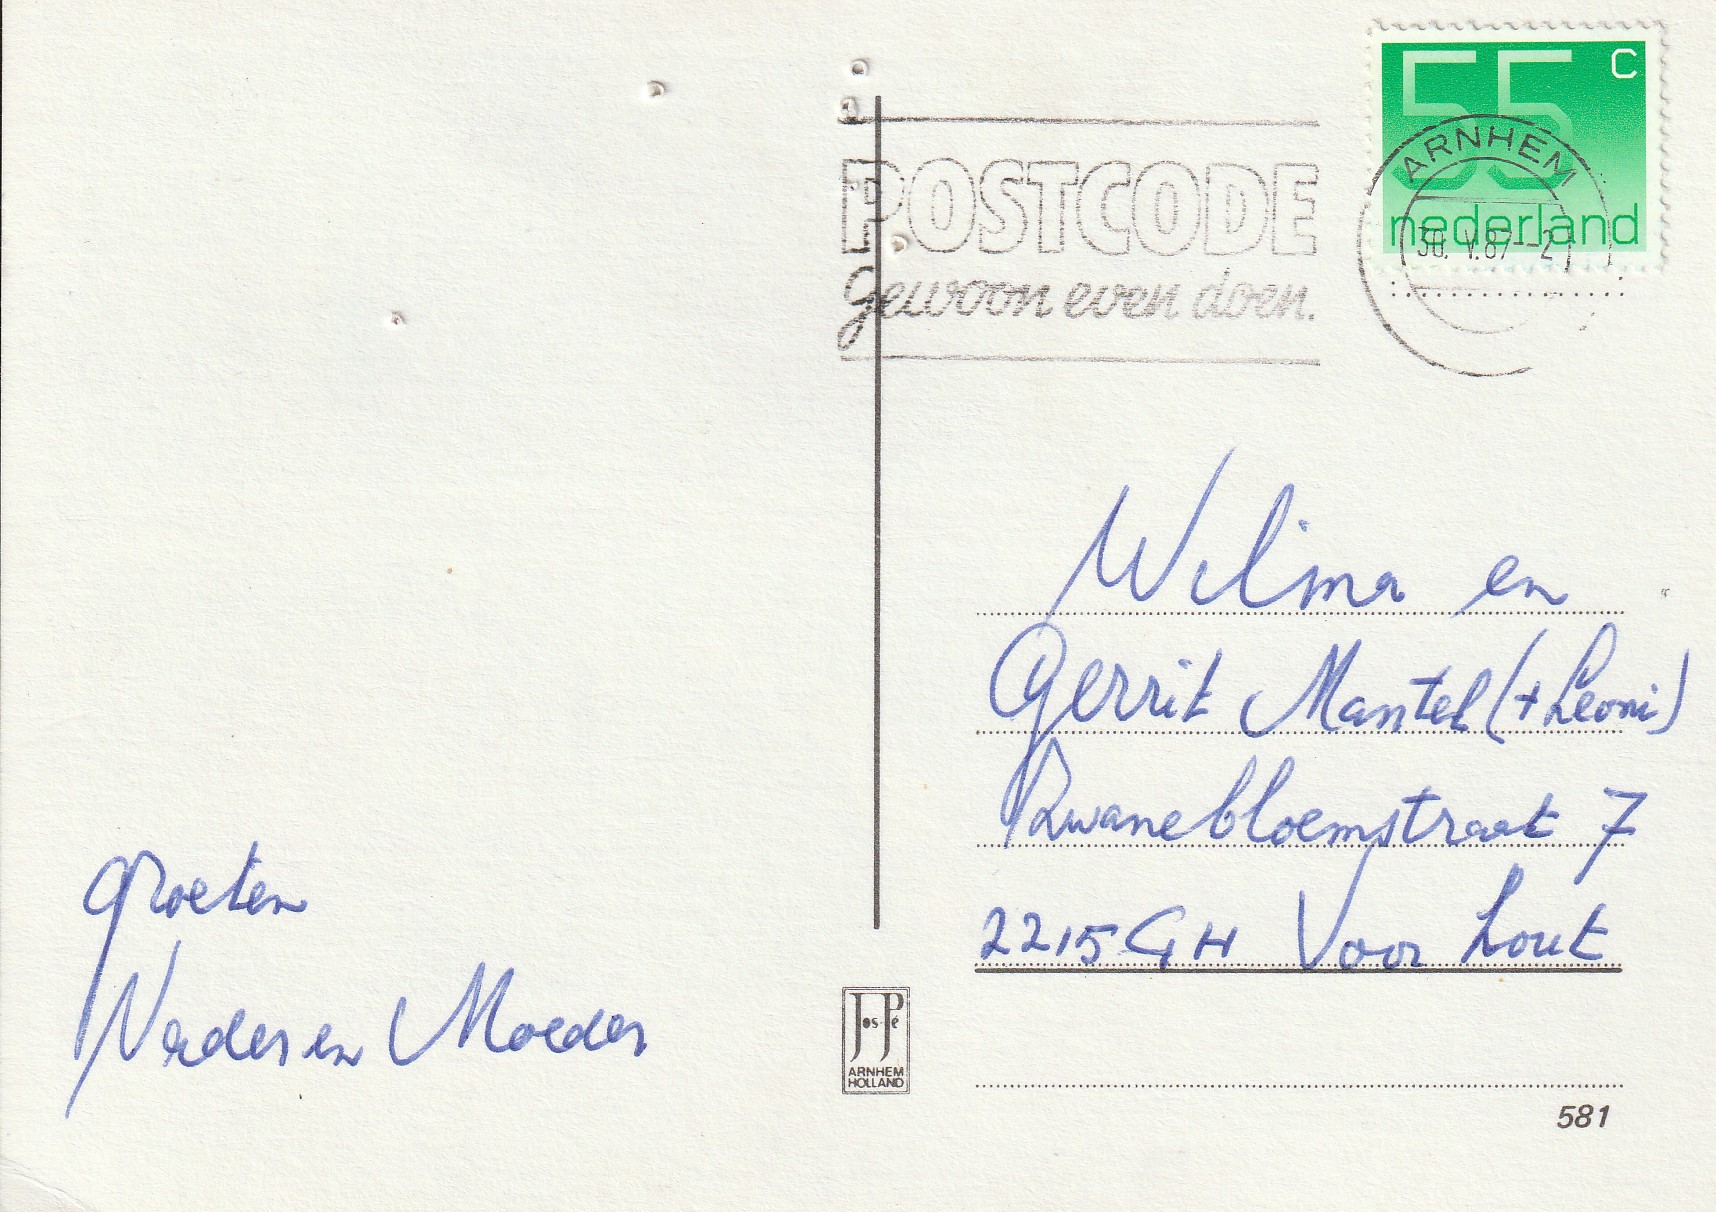 55 c
nederland
ARNHEM
30. V.87--2
POSTCODE
gewoon even doen.
Wilma en
Gerrit Mantel (+ Leoni)
Zwanebloemstraat 7
2215 GH Voorhout
groeten
Vader en Moeder
Jos-Pé
ARNHEM
HOLLAND
581